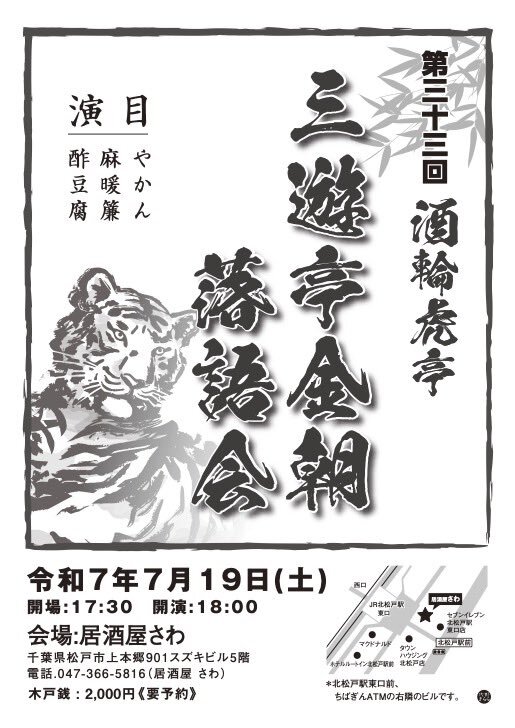 第三十三回
酒輪虎亭
三遊亭金朝
落語会
演目
やかん
麻暖簾
酢豆腐
令和7年7月19日(土)
開場:17:30 開演:18:00
会場:居酒屋さわ
千葉県松戸市上本郷901スズキビル5階
電話.047-366-5816(居酒屋 さわ)
木戸銭:2,000円《要予約》
西口
JR北松戸駅
東口
居酒屋さわ
セブンイレブン
北松戸駅
東口店
北松戸駅前
マクドナルド
タウン
ハウジング
北松戸店
ホテルルートイン北松戸駅前
*北松戸駅東口前、
ちばぎんATMの右隣のビルです。